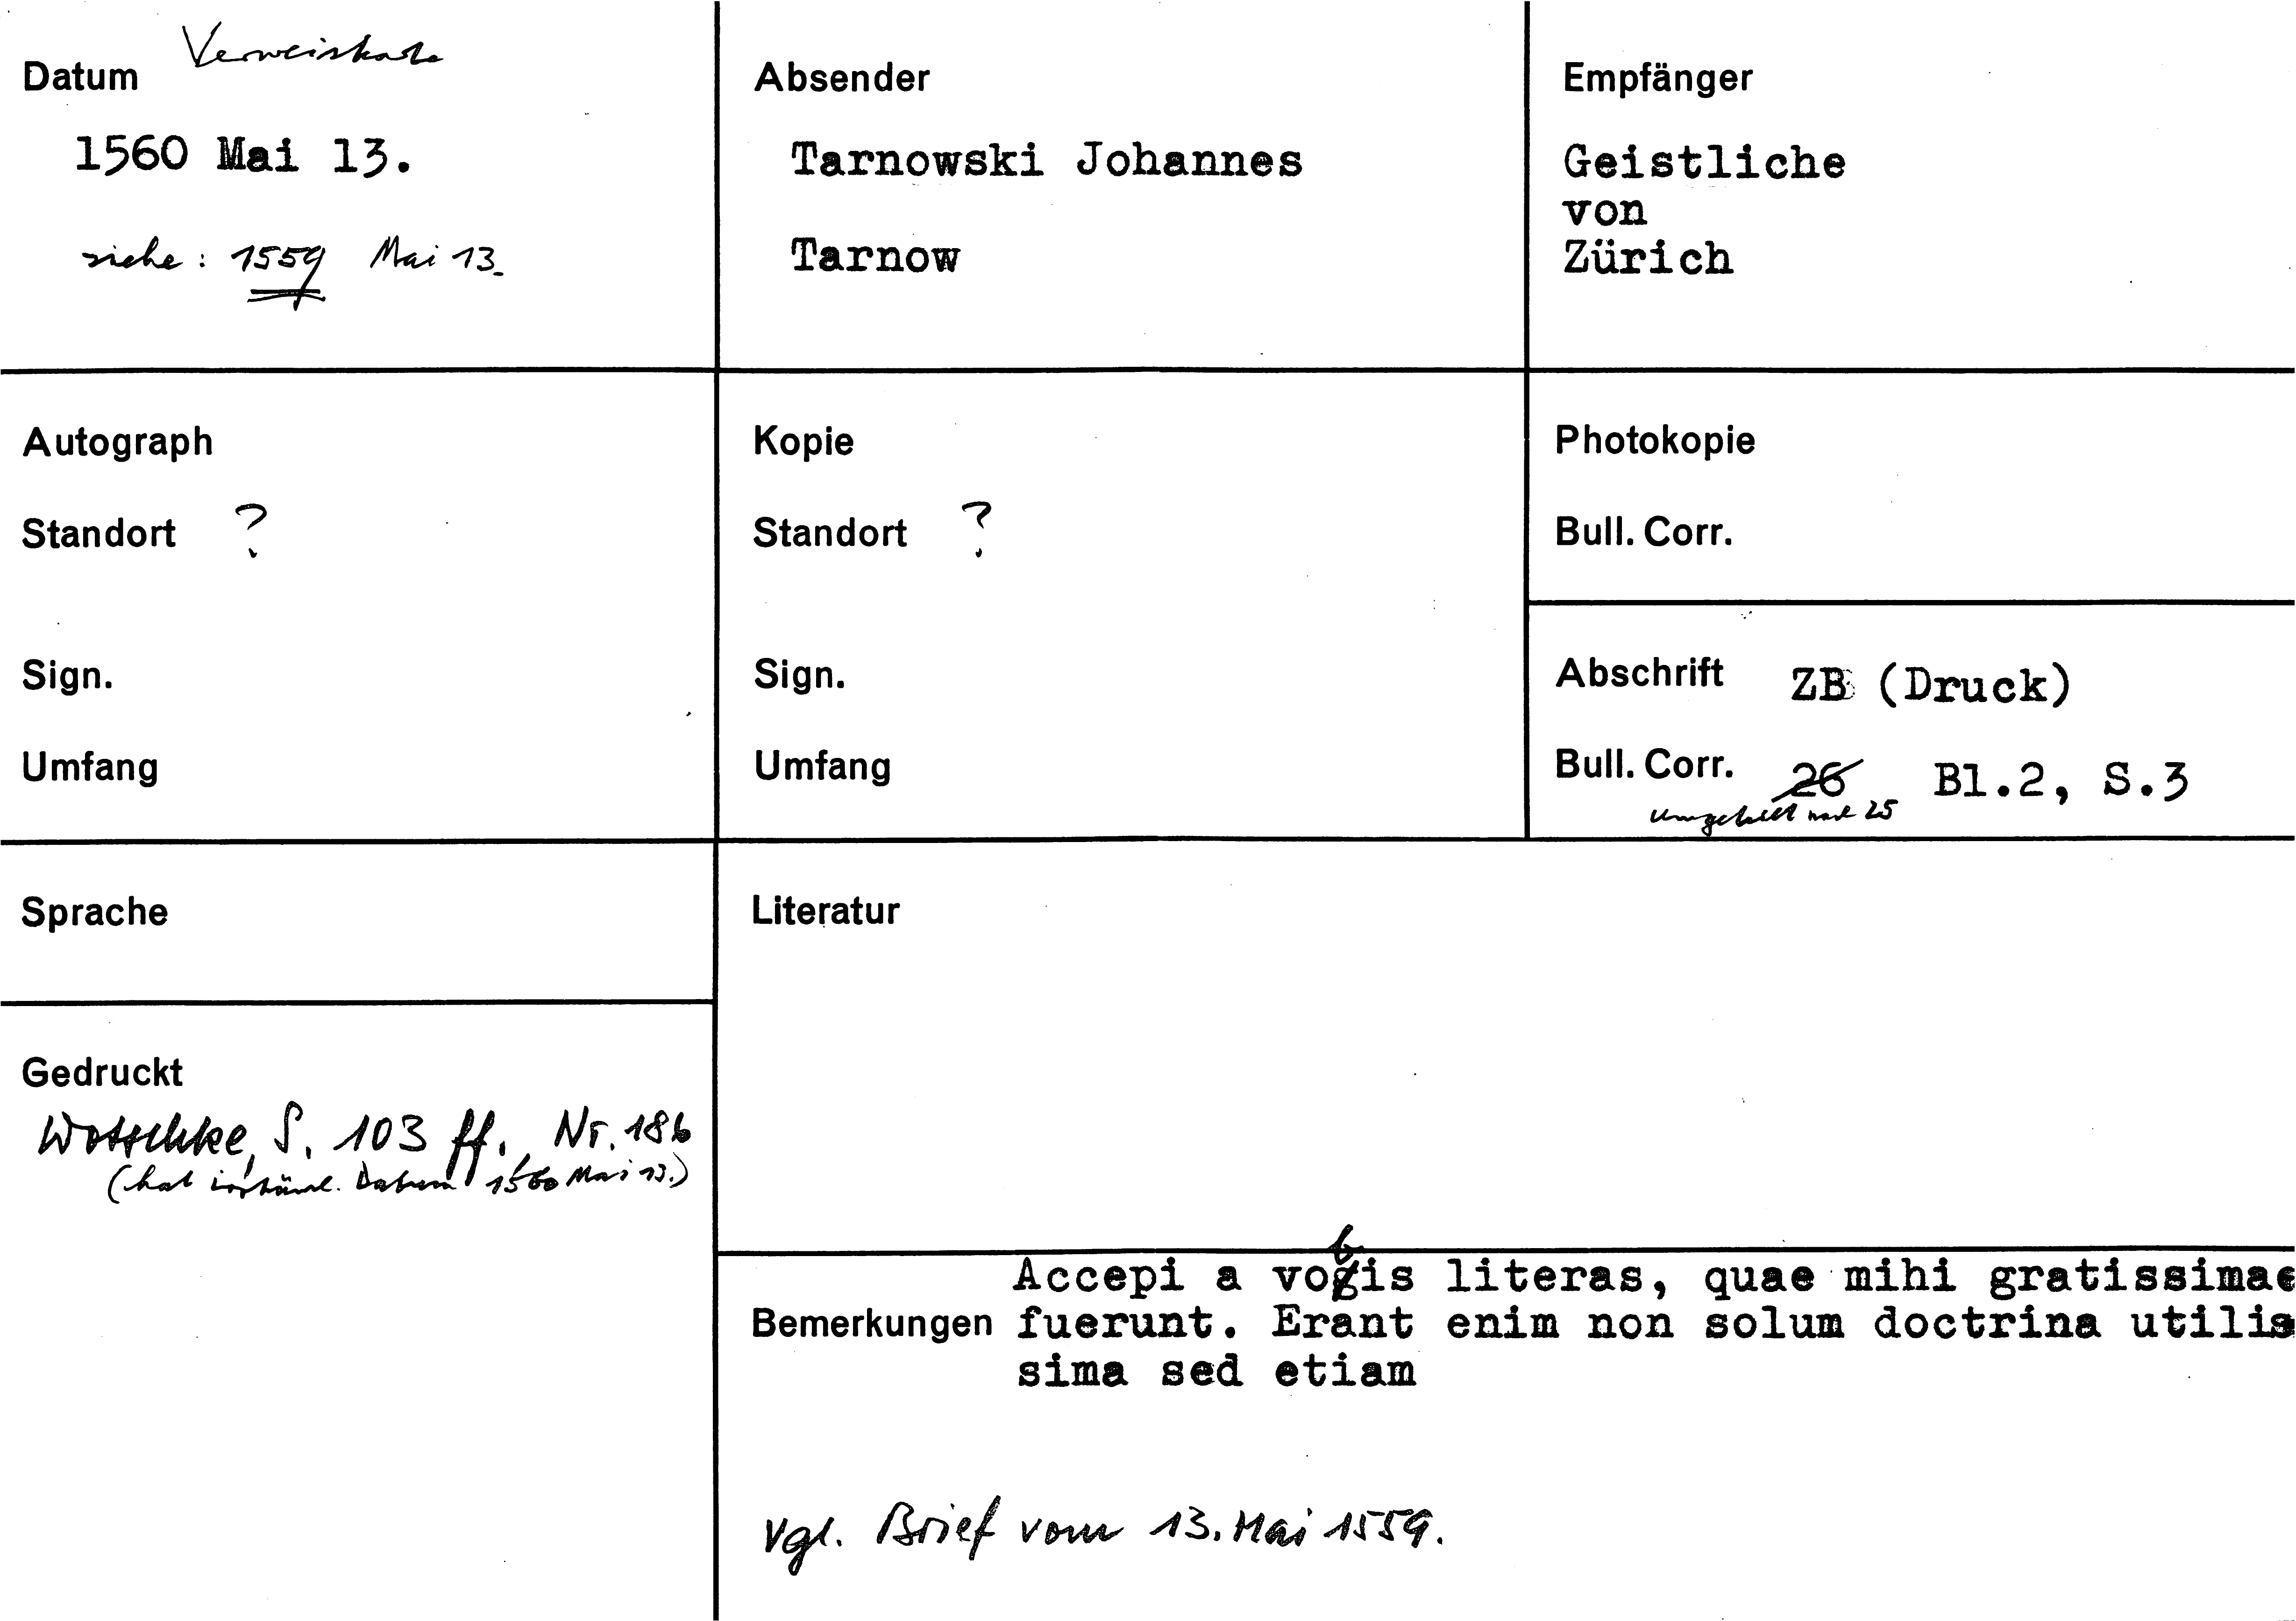 Datum Verweiskarte
1560 Mai 13.
siehe: 1559 Mai 13.
Absender
Tarnowski Johannes
Tarnow
Empfänger
Geistliche
von
Zürich
Autograph
Standort ?
Sign.
Umfang
Kopie
Standort ?
Sign.
Umfang
Photokopie
Bull. Corr.
Abschrift ZB (Druck)
Bull. Corr. 26 Bl.2, S.3
umgestellt nach 25
Sprache
Literatur
Gedruckt
Wotschke, S. 103 ff., Nr. 186
(hat irrtüml. Datum 1560 Mai 13.)
Accepi a vobis literas, quae mihi gratissimae
Bemerkungen fuerunt. Erant enim non solum doctrina utilis
sima sed etiam
vgl. Brief vom 13. Mai 1559.